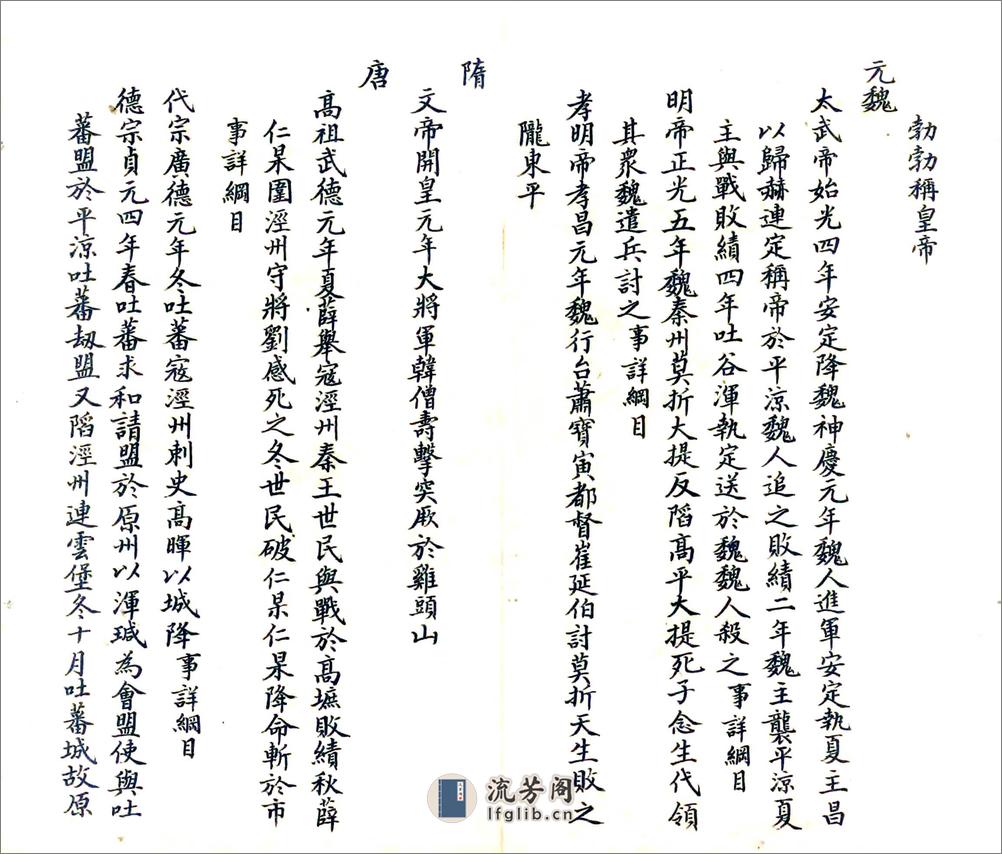 勃勃稱皇帝
元魏
太武帝始光四年安定降魏神慶元年魏人進軍安定執夏主昌
以歸赫連定稱帝於平涼魏人追之敗績二年魏主襲平涼夏
主與戰敗績四年吐谷渾執定送於魏魏人殺之事詳綱目
明帝正光五年魏秦州莫折大提反陷高平大提死子念生代領
其衆魏遣兵討之事詳綱目
孝明帝孝昌元年魏行台蕭寶寅都督崔延伯討莫折天生敗之
隴東平
隋
文帝開皇元年大將軍韓僧壽擊突厥於雞頭山
唐
高祖武德元年夏薛舉寇涇州秦王世民與戰於高墌敗績秋薛
仁杲圍涇州守將劉感死之冬世民破仁杲仁杲降命斬於市
事詳綱目
代宗廣德元年冬吐蕃寇涇州刺史高暉以城降事詳綱目
德宗貞元四年春吐蕃求和請盟於原州以渾瑊為會盟使與吐
蕃盟於平涼吐蕃刼盟又陷涇州連雲堡冬十月吐蕃城故原
流芳阁
lfglib.cn